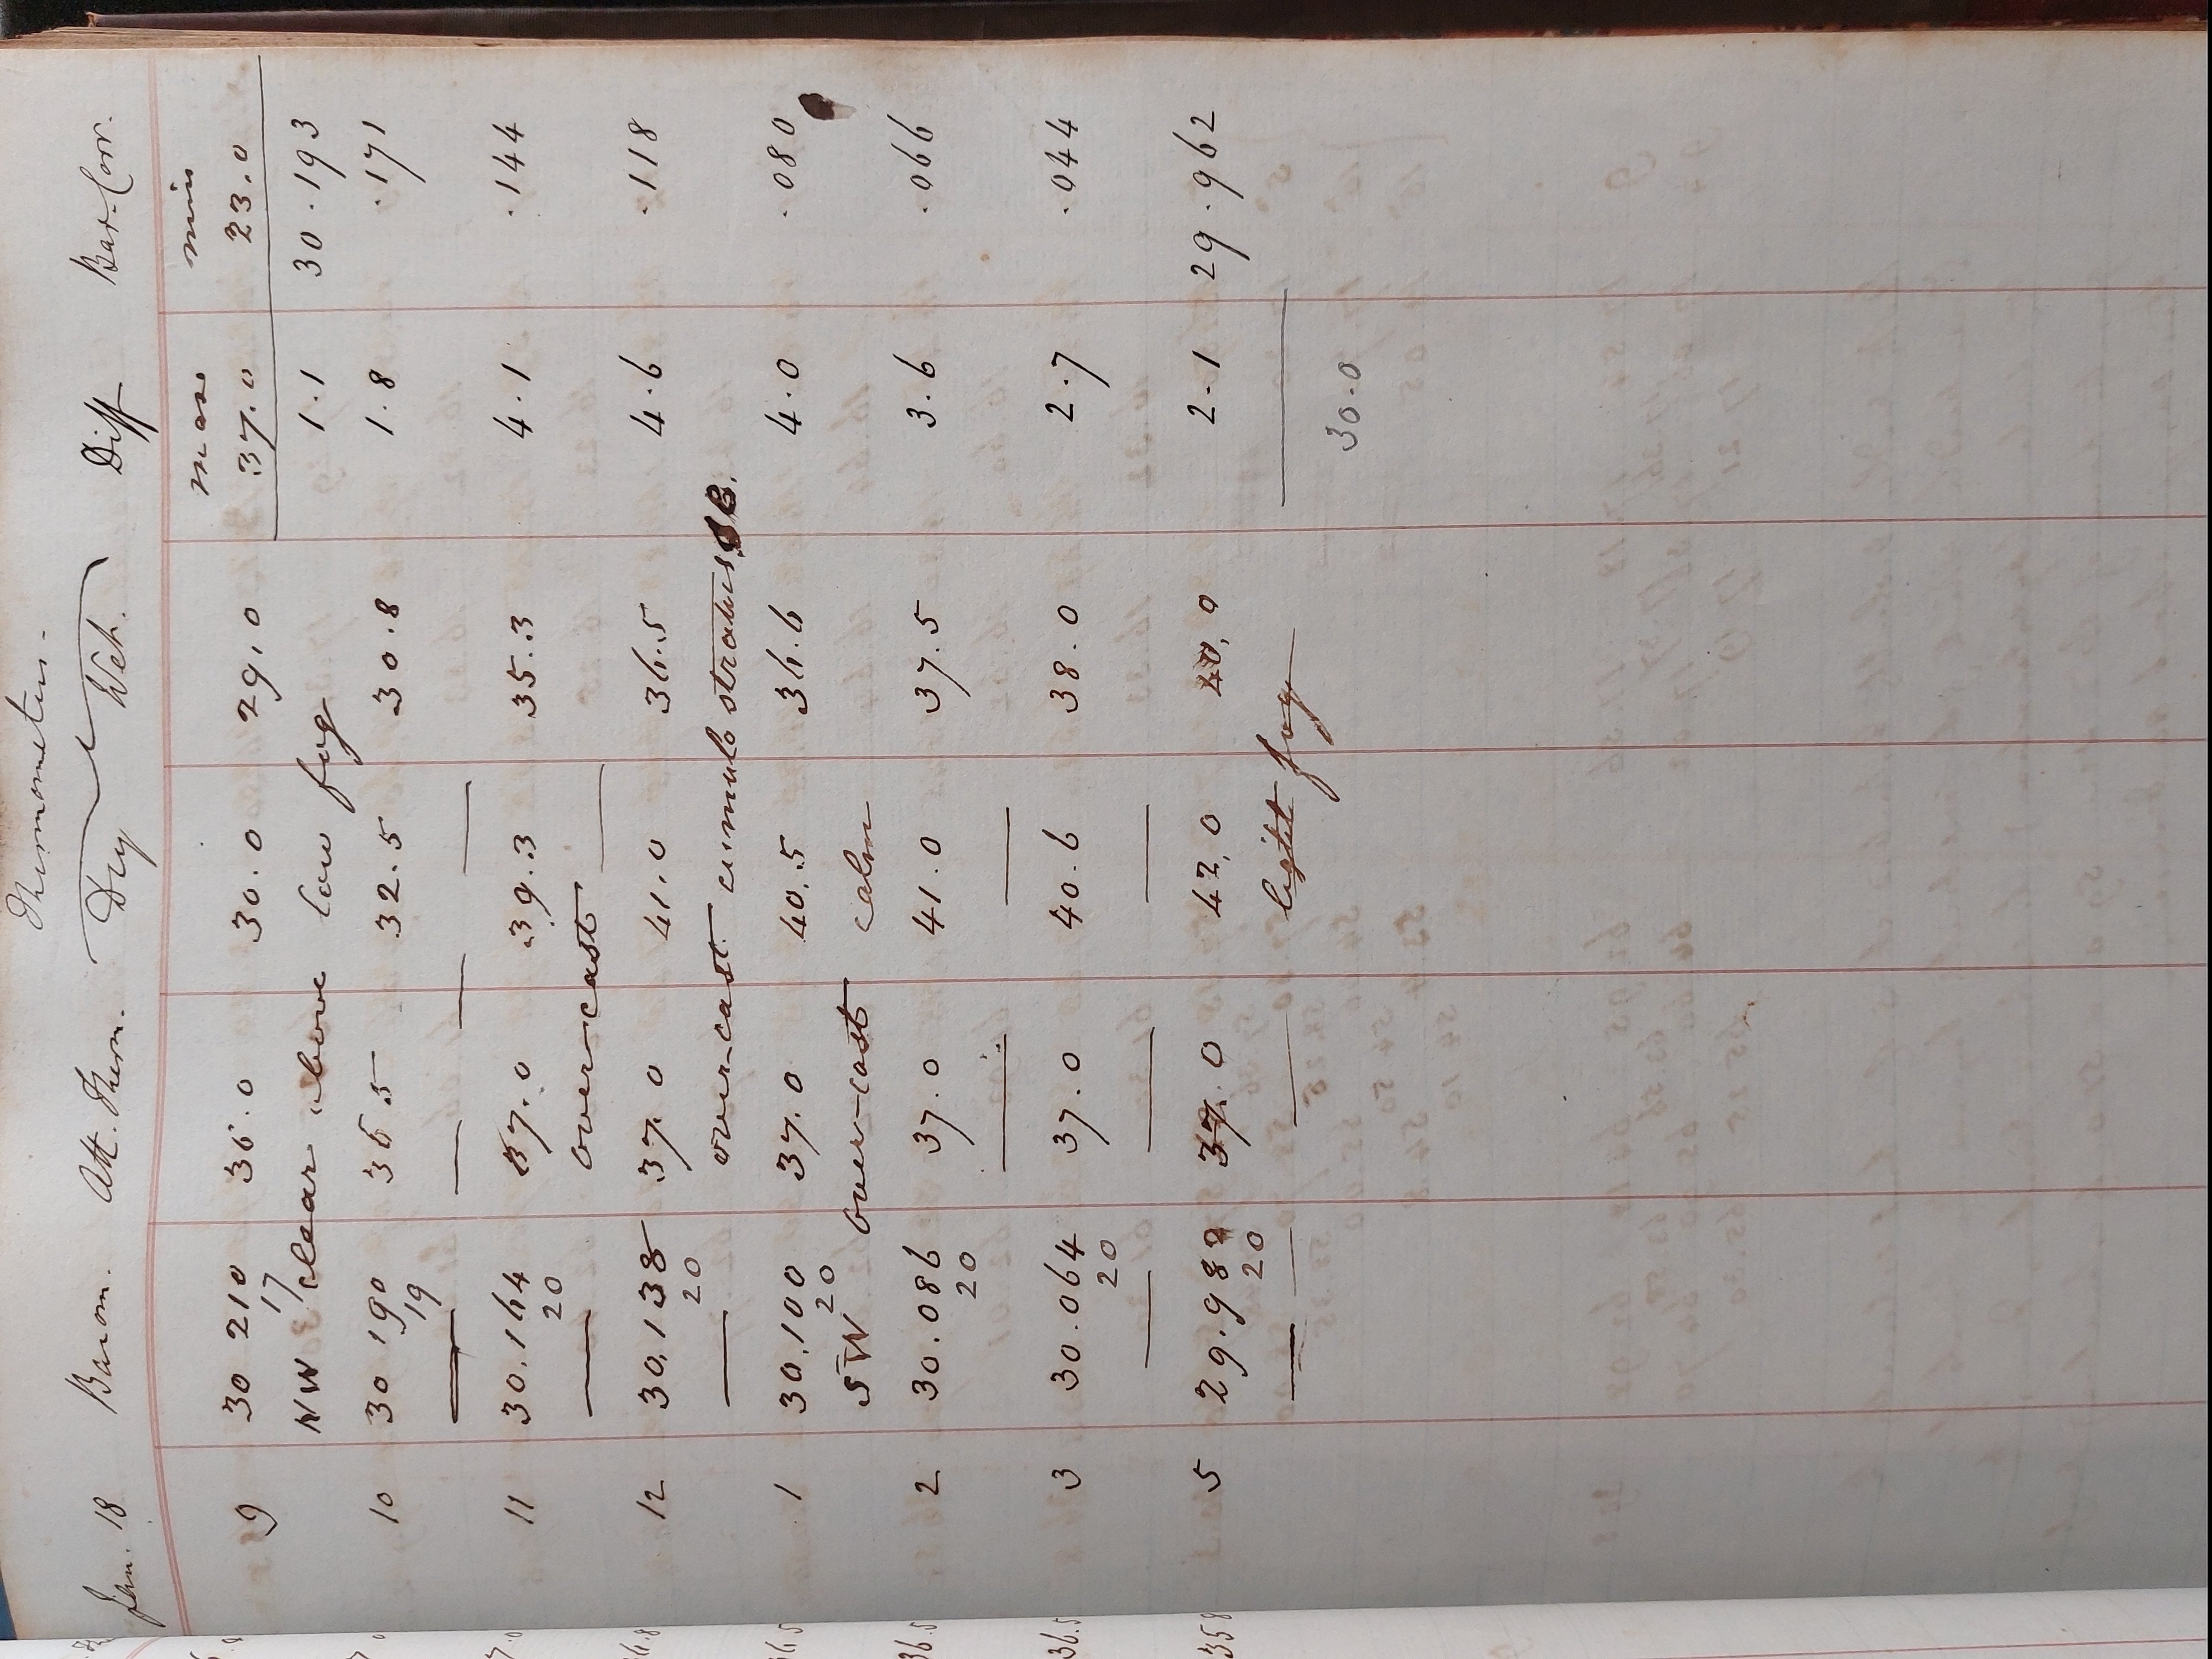 Thermometers.
Jan. 18 Barom. Att. Therm. Dry Wet. Diff Bar. Corr.
max min
9 30 210 36.0 30.0 29.0 37.0 23.0
17
NW clear above low fog 1.1 30.193
10 30 190 36 5 32.5 30.8 1.8 .171
19
11 30.164 37.0 39.3 35.3 4.1 .144
20
over-cast
12 30.138 37.0 41.0 36.5 4.6 .118
20
over-cast cumulo stratus
1 30.100 37.0 40.5 36.6 4.0 .080
20
SW over-cast calm
2 30.086 37.0 41.0 37.5 3.6 .066
20
3 30.064 37.0 40.6 38.0 2.7 .044
20
5 29.982 37.0 42.0 40.0 2.1 29.962
20
light fog
30.0